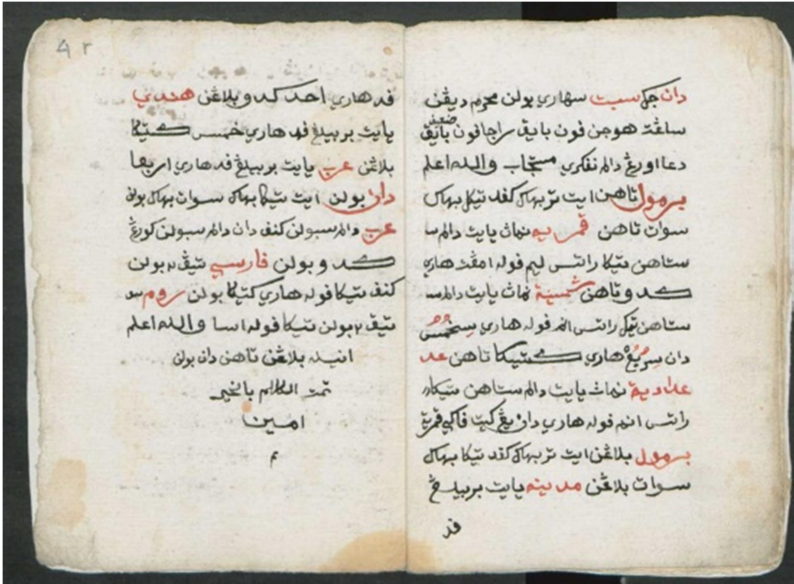 دان جک سبت سهاري بولن محرم ديڤن
ساڠت هوجن ڤون بايق راجا ڤون بايق
دعا اورڠ دالم نڬري مستجاب والله اعلم
برمول تاهن ايت تربهاݢ کڤد تيݢ بهاݢ
سوات تاهن قمريه نمان يايت دالم س
ستاهن تيݢ راتس ليم ڤوله امڤت هاري
کدو تاهن شمسية نمان يايت دالم س
ستاهن تيݢ راتس انم ڤوله هاري سخمس
دان سربع هاري کتيݢ تاهن عد
عدادية نمان يايت دالم ستاهن تيݢ
راتس انم ڤوله هاري دان يڠ کيت ڤاکي
برمول بلاڠن ايت تربهاݢ کڤد تيݢ بهاݢ
سوات بلاڠن مدينه يايت بربيلڠ
ڤد
٤٢
ڤد هاري احد کدو بلاڠن هندي
يايت بربيلڠ ڤد هاري خمس کتيݢ
بلاڠن عرب يايت بربيلڠ ڤد هاري اربعا
دان بولن ايت تيݢ بهاݢ سوات بهاݢ بولن
عرب دالم سبولن کنڤ دان دالم سبولن کورڠ
کدو بولن فارسي تيڤ٢ بولن
کنڤ تيݢ ڤوله هاري کتيݢ بولن روم س
تيڤ٢ بولن تيݢ ڤوله اسا والله اعلم
انيله بلاڠن تاهن دان بولن
تمت الکلام بالخير
امين
م